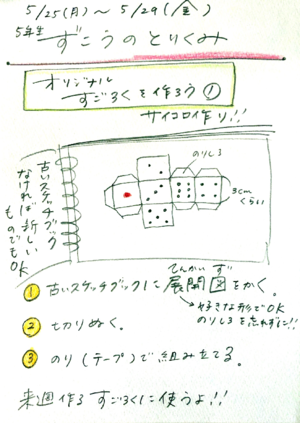 5/25(月)～5/29(金)
5年生 ずこうのとりくみ
オリジナル
すごろくを作ろう①
サイコロ作り!!
古いスケッチブック
なければ新しい
ものでもOK
のりしろ
3cm
くらい
てんかい ず
① 古いスケッチブックに展開図をかく。
→好きな形でOK
のりしろを忘れずに!!
② 切りぬく。
③ のり(テープ)で組み立てる。
来週作るすごろくに使うよ!!